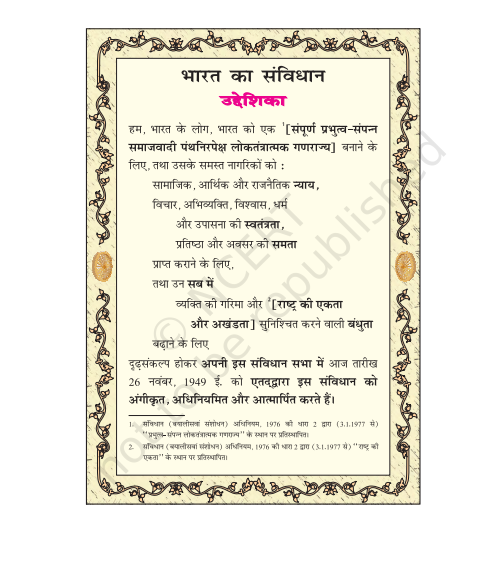 भारत का संविधान
उद्देशिका
हम, भारत के लोग, भारत को एक ¹[संपूर्ण प्रभुत्व-संपन्न
समाजवादी पंथनिरपेक्ष लोकतंत्रात्मक गणराज्य] बनाने के
लिए, तथा उसके समस्त नागरिकों को :
सामाजिक, आर्थिक और राजनैतिक न्याय,
विचार, अभिव्यक्ति, विश्वास, धर्म
और उपासना की स्वतंत्रता,
प्रतिष्ठा और अवसर की समता
प्राप्त कराने के लिए,
तथा उन सब में
व्यक्ति की गरिमा और ²[राष्ट्र की एकता
और अखंडता] सुनिश्चित करने वाली बंधुता
बढ़ाने के लिए
दृढ़संकल्प होकर अपनी इस संविधान सभा में आज तारीख
26 नवंबर, 1949 ई. को एतद्द्वारा इस संविधान को
अंगीकृत, अधिनियमित और आत्मार्पित करते हैं।
1. संविधान (बयालीसवां संशोधन) अधिनियम, 1976 की धारा 2 द्वारा (3.1.1977 से)
"प्रभुत्व-संपन्न लोकतंत्रात्मक गणराज्य" के स्थान पर प्रतिस्थापित।
2. संविधान (बयालीसवां संशोधन) अधिनियम, 1976 की धारा 2 द्वारा (3.1.1977 से) "राष्ट्र की
एकता" के स्थान पर प्रतिस्थापित।
© NCERT
not to be republished